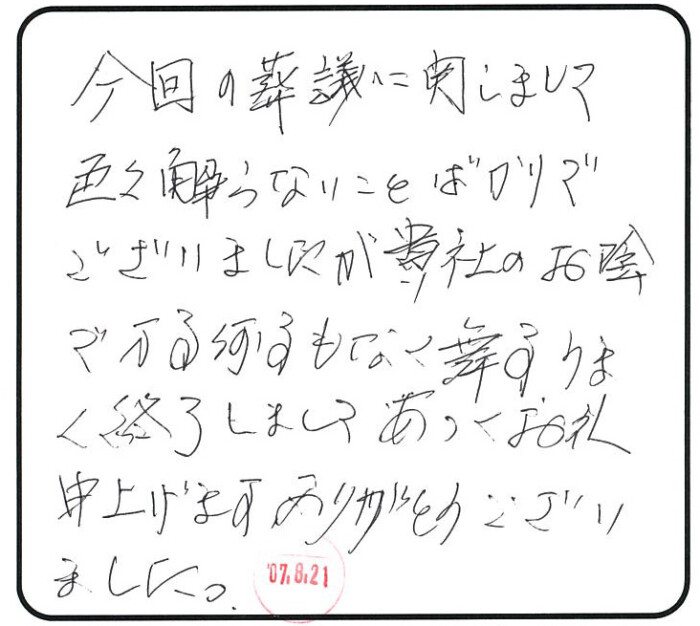 今回の葬議に関しまして
色々解らないことばかりで
ございましたが貴社のお陰
で万る何るもなく無るうま
く終了しましてあつくお礼
申上げますありがとうござい
ました。
'07.8.21